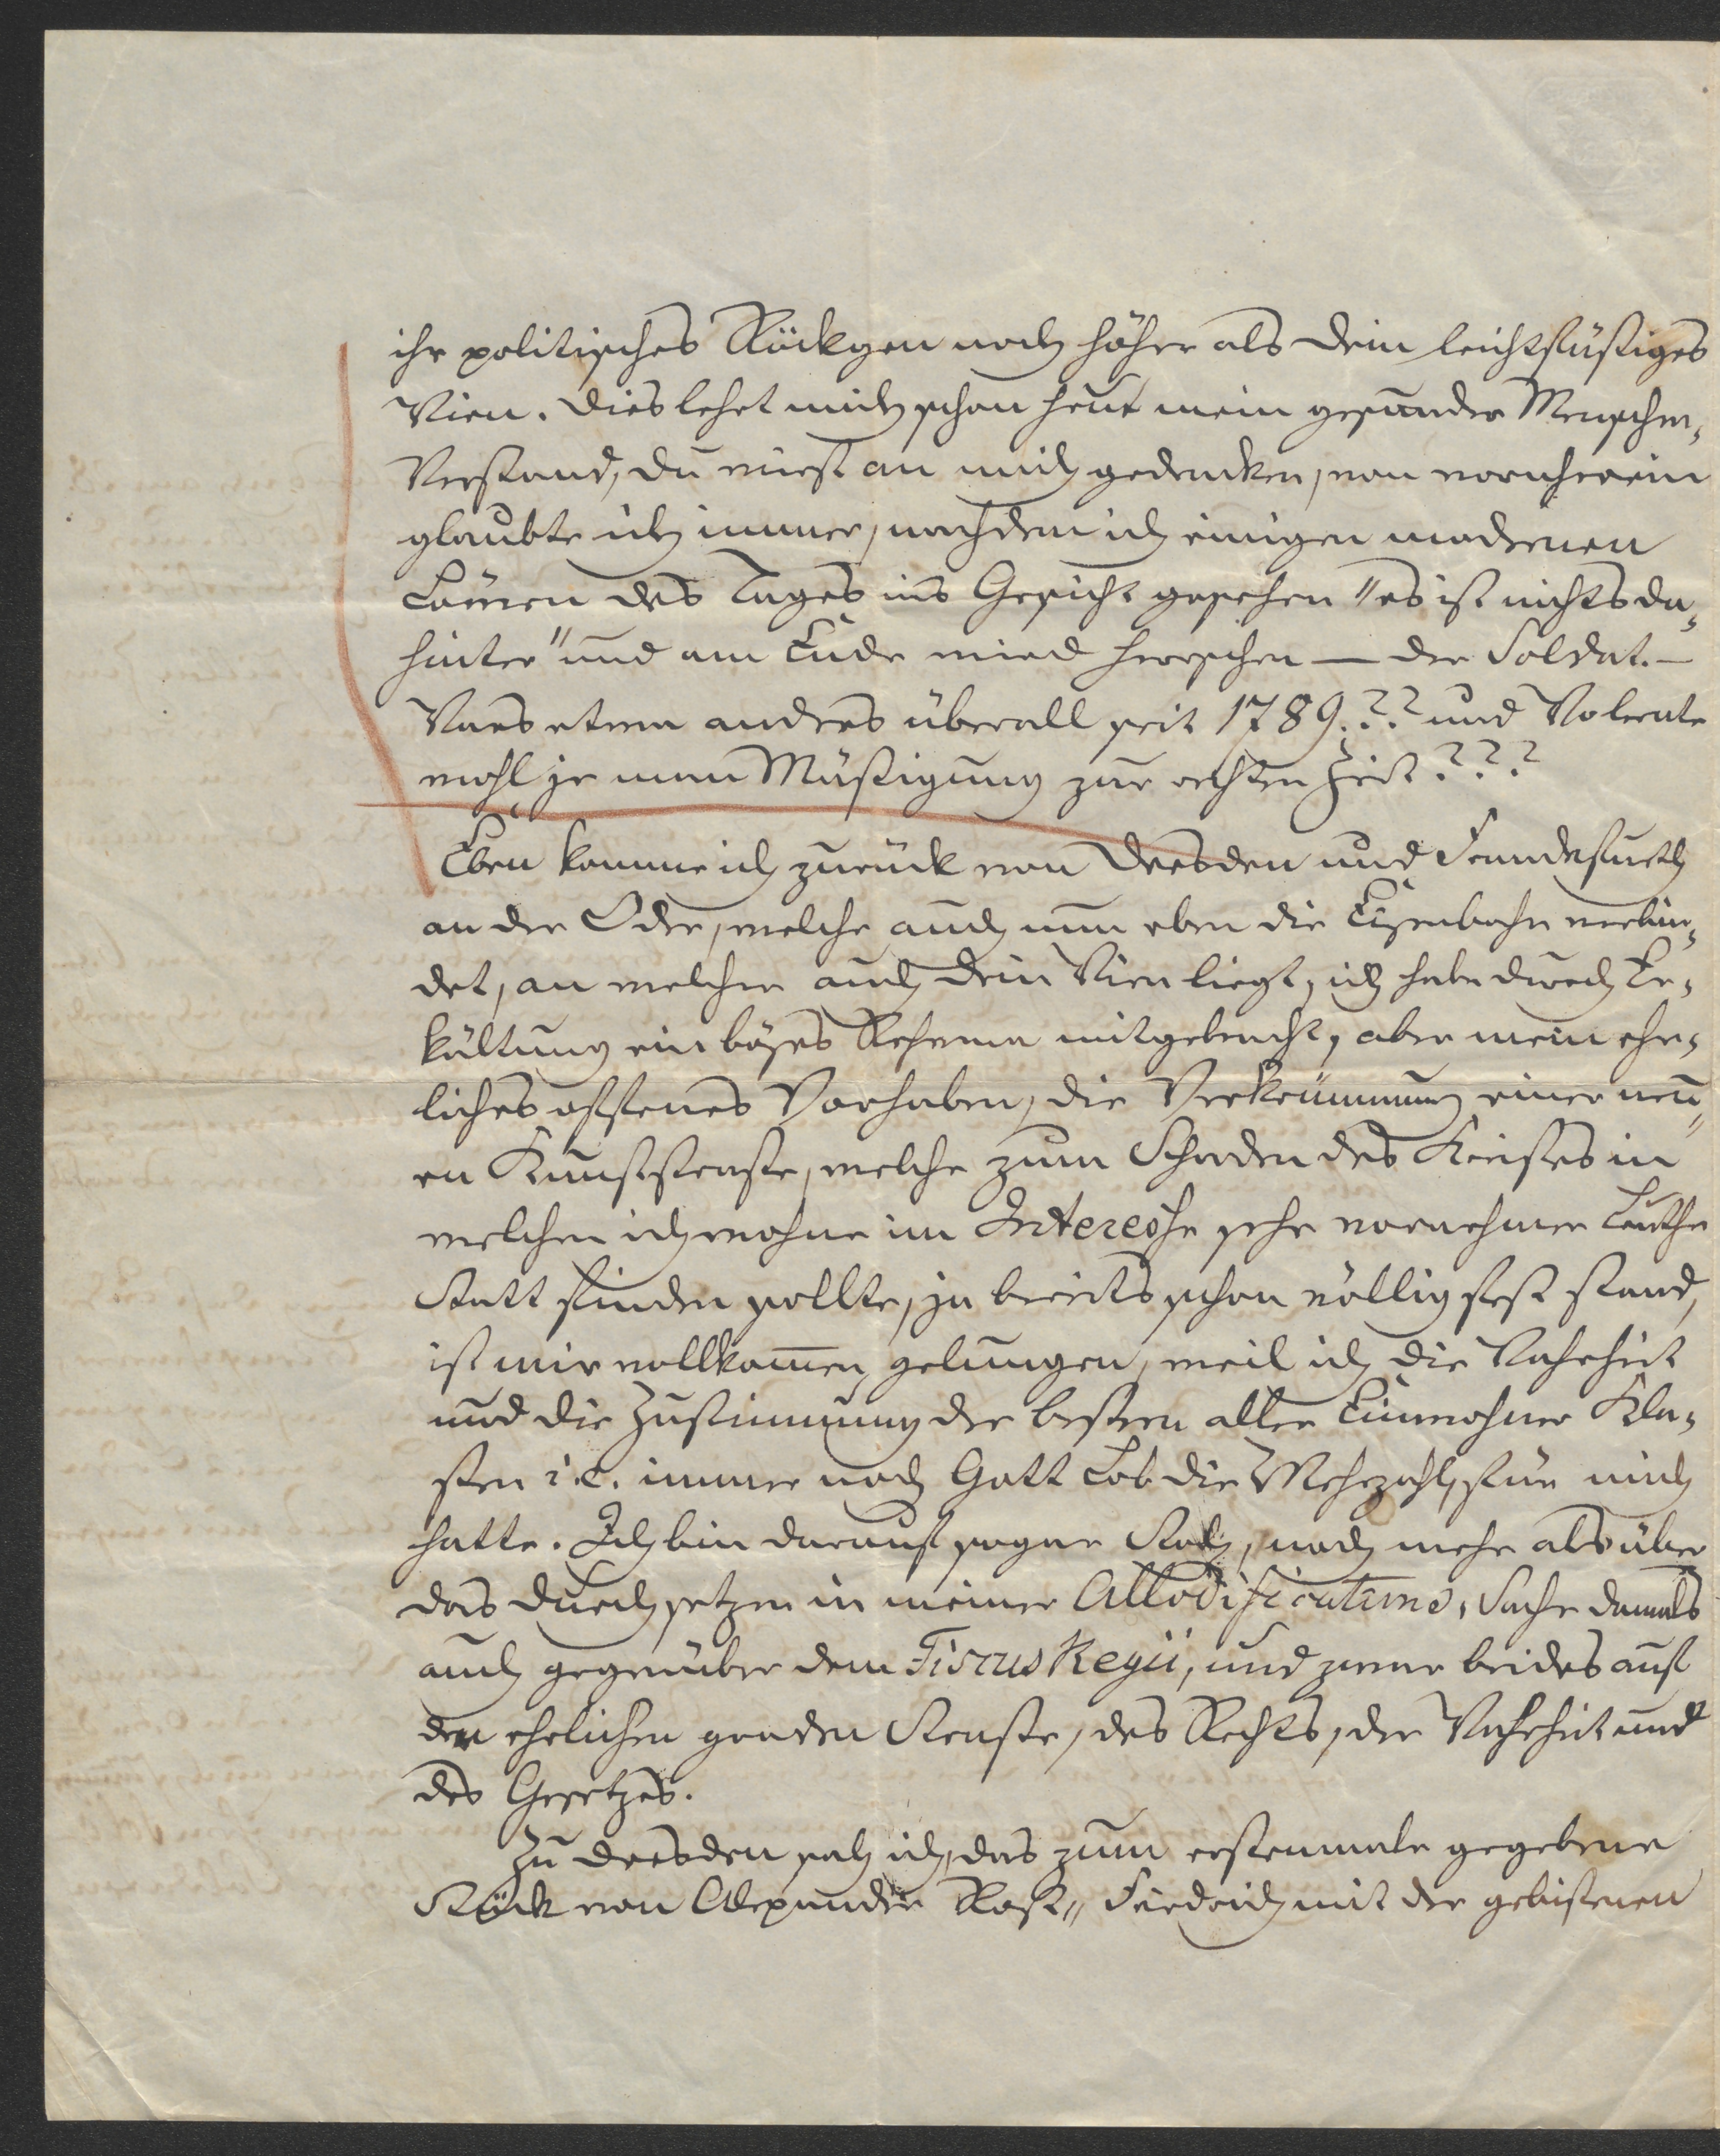 ihr politisches Röckgen noch höher als dein leichtfüßiges
Wien. Dies lehrt mich schon heut mein gesunder Menschen-
Verstand, du wirst an mich gedenken, von vornherein
glaubte ich immer, nachdem ich einigen modernen
Lämen des Tages ins Gesicht gesehen "es ist nichts da-
hinter" und am Ende wird herrschen — der Soldat. —
Wars etwa anders überall seit 1789.?? und
wohl je nun Mäßigung zur rechten Zeit???
Eben komme ich zurück von Dresden und
an der Oder, welche auch nun eben die Eisenbahn verbin-
det, an welcher auch dein Wien liegt, ich habe durch Er-
kältung ein böses Rehuma mitgebracht, aber mein ehr-
liches offenes Vorhaben, die Verkrümmung einer neu-
en Kunststraße, welche zum Schaden des Kreises in
welchen ich wohne im Interesse sehr vornehmer Leuthe
Statt finden sollte, ja bereits schon völlig fest stand,
ist mir vollkommen gelungen, weil ich die Wahrheit
und die Zustimmung der bessern aller Einwohner Kla-
ssen i.e. immer noch Gott Lob die Mehrzahl, für mich
hatte. Ich bin darauf sogar Stolz, noch mehr als über
das Durchsetzen in meiner Allodificutions, Sache damals
auch gegenüber dem Fiscus Regii, und zwar beides auf
der ehrlichen graden Straße, des Rechts, der Wahrheit und
des Gesetzes.
Zu Dresden sah ich, das zum erstenmale gegebene
Stück von Alexander Rost, Friedrich mit der gebissenen